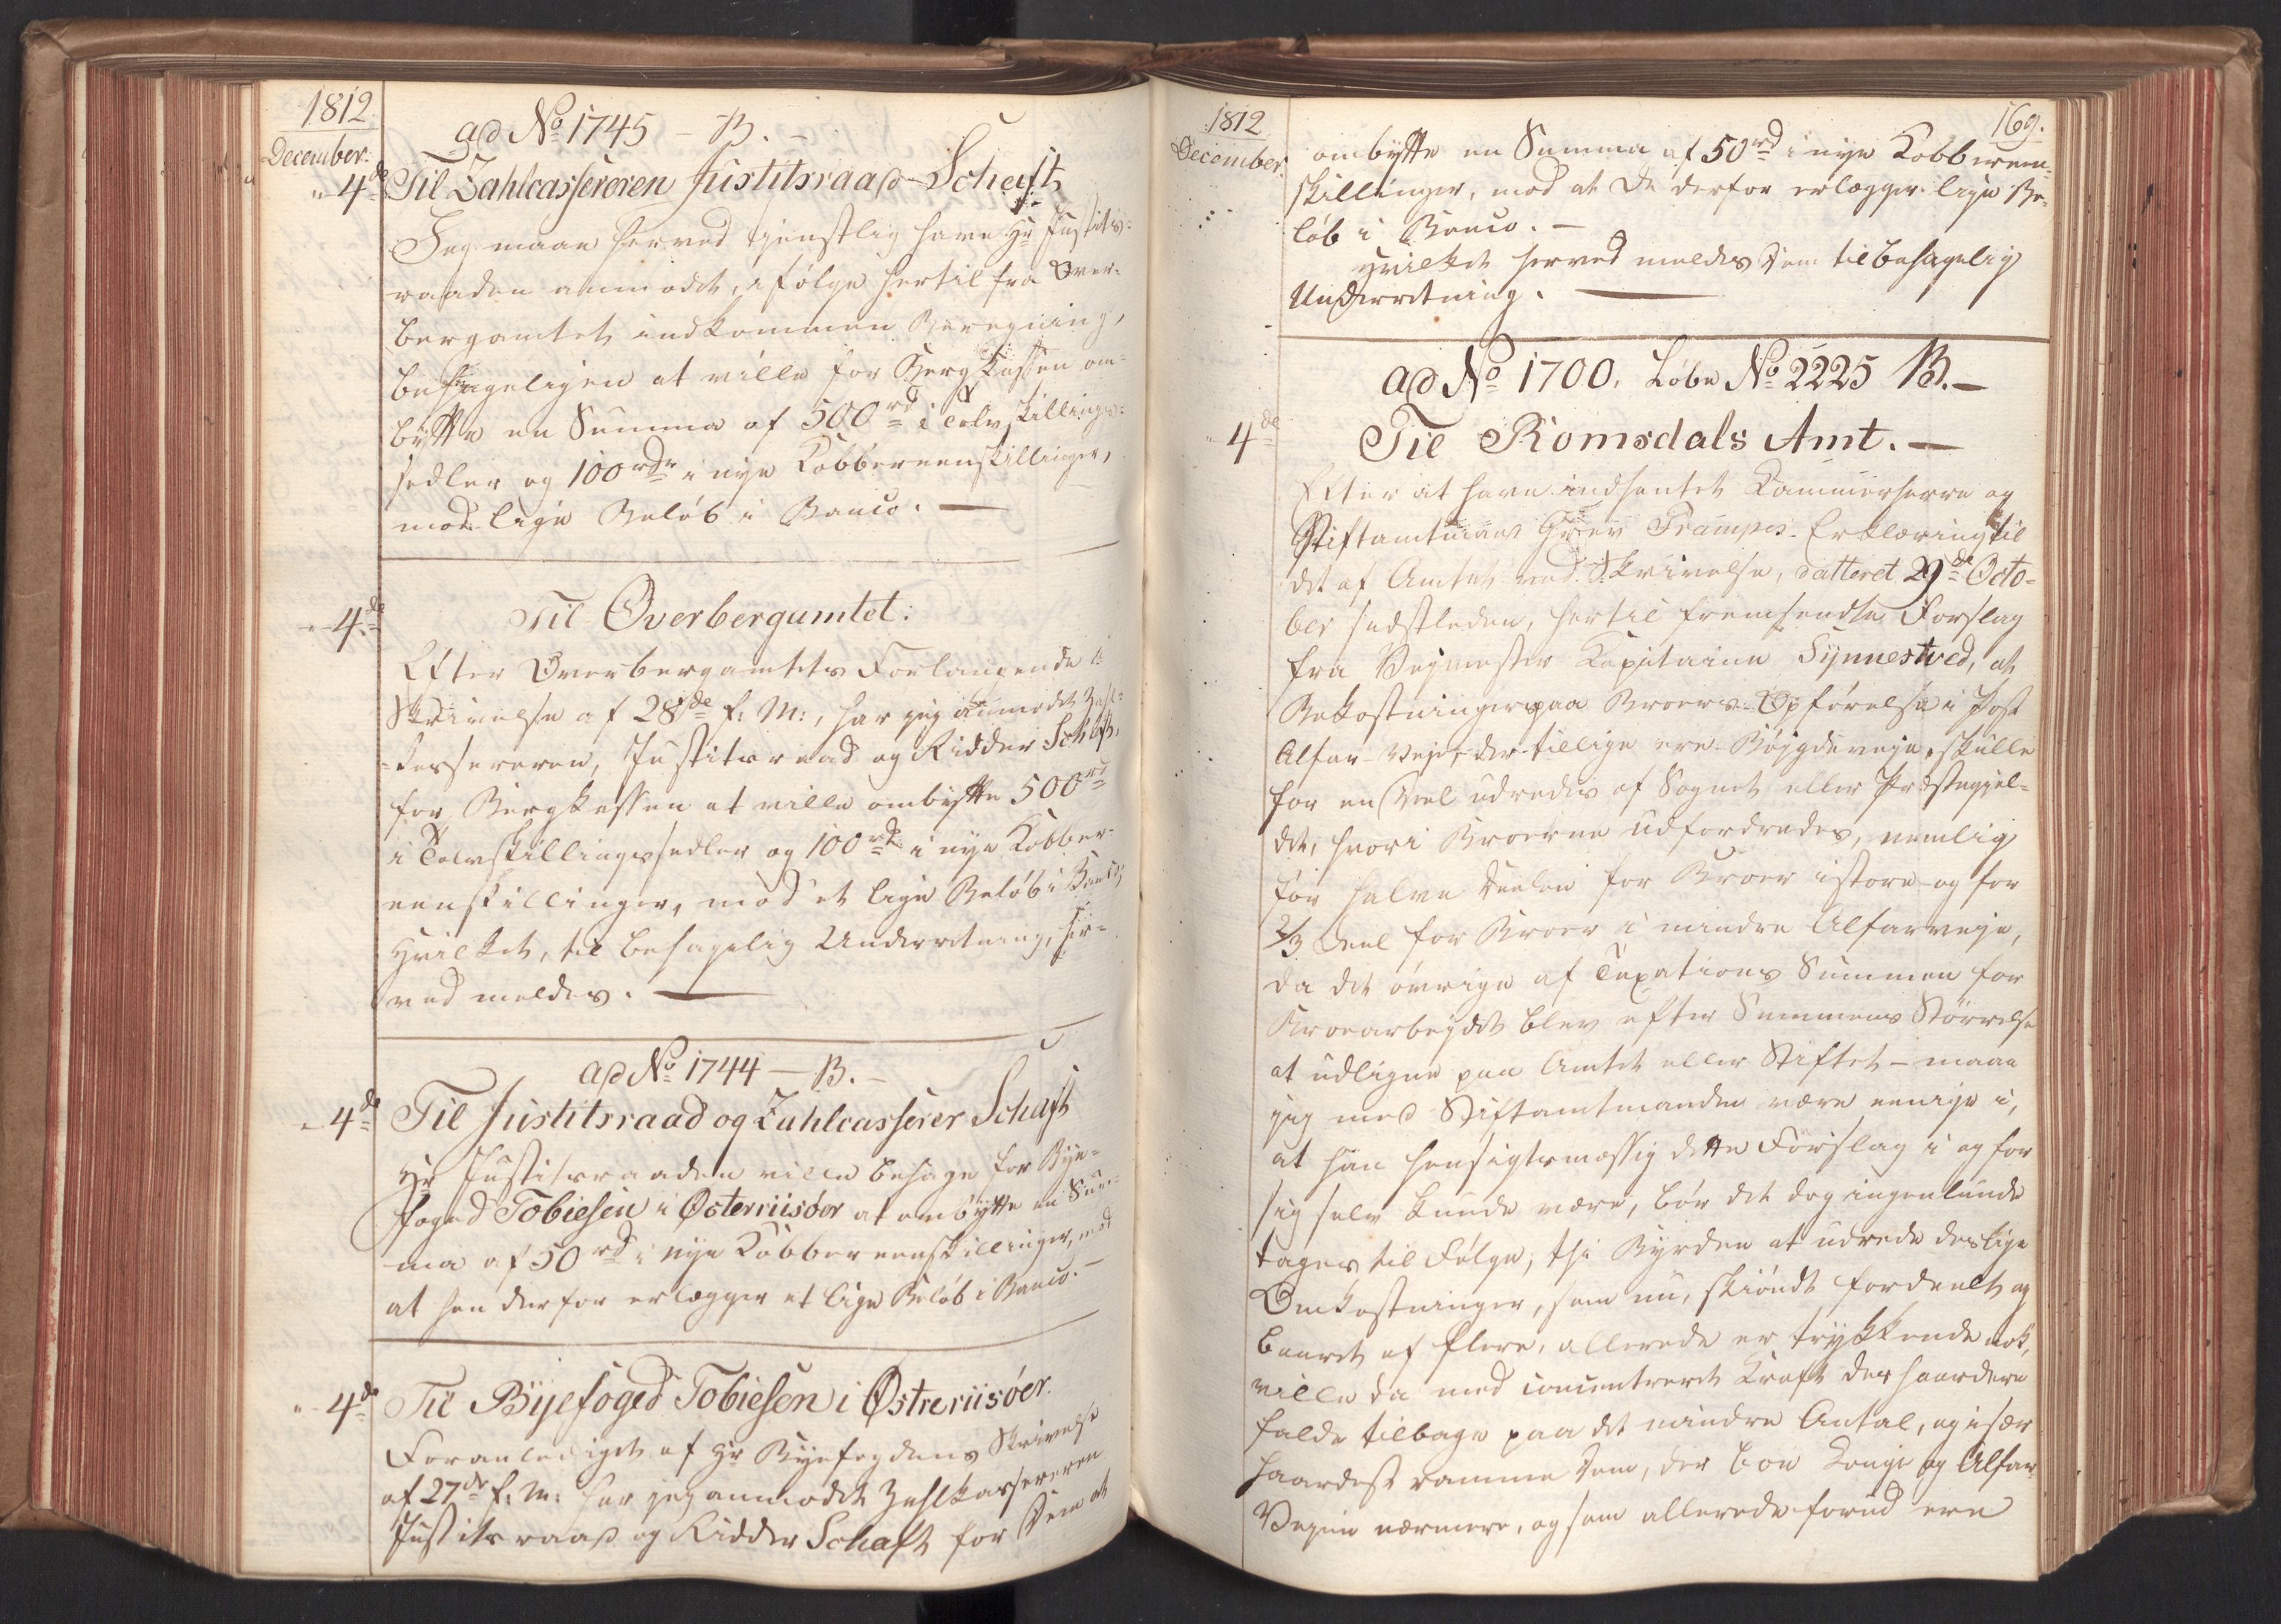 1812
December.
ad No 1745 - B. -
4de Til Zahlcasserøren Justitsraad Schaft
Jeg maae herved tjenstlig have Hr Justits-
raaden anmodet, ifølge hertil fra Over-
bergamtet indkommen Begjering,
behageligen at ville for Bergkassen om-
bytte en Summa af 500 rd i Tolvskillings-
sedler og 100 rdr i nye Kobbereenskillinger,
mod lige Beløb i Banco. —
4de Til Overbergamtet.
Efter Overbergamtets Forlangende i
Skrivelse af 28de f: M:, har jeg anmodet Zahl-
kassereren, Justitsraad og Ridder Schaft,
for Bergkassen at ville ombytte 500 rd
i Tolvskillingssedler og 100 rd i nye Kobber-
eenskillinger, mod et lige Beløb i Banco,
Hvilket, til behagelig Underretning, her-
ved meldes. —
ad No 1744 — B. -
4de Til Justitsraad og Zahlcasserer Schaft
Hr Justitsraaden ville behage for Bye-
foged Tobiesen i Østerriisöer at ombytte en Sum-
ma af 50 rd i nye Kobbereenskillinger, mod
at han derfor erlægger et lige Beløb i Banco. —
4de Til Byefoged Tobiesen i Østreriisöer.
Foranlediget af Hr Byefogdens Skrivelse
af 27de f: M: har jeg anmodet Zahlkassereren
Justitsraad og Ridder Schaft for Dem at
1812
December.
169.
ombytte en Summa af 50 rd i nye Kobbereen-
skillinger, mod at De derfor erlægger lige Be-
løb i Banco. —
Hvilket herved meldes Dem til behagelig
Underretning. —
ad No 1700. Løbe No 2225 B. —
4de Til Romsdals Amt. —
Efter at have indhentet Kammerherre og
Stiftamtmand Grev Trampes Erklæring til
det af Amtet ved Skrivelse, datteret 29de Octo-
ber sidstleden, hertil fremsendte Forslag
fra Vejmester Kapitaine Synnestved, at
Bekostninger paa Broers Opførelse i Post
Alfar-Veje, der tillige ere Bøjgdeveje, skulle
for en Deel udredes af Sognet eller Præstegjel-
det, hvori Broerne udfordredes, nemlig
for halve Deelen for Broer i store- og for
2/3 Deel for Broer i mindre Alfarveje,
da det øvrige af Taxations Summen for
Broearbejdet blev efter Summens Størrelse
at udligne paa Amtet eller Stiftet - maae
jeg med Stiftamtmanden være eenige i,
at saa hensigtsmæssig dette Forslag i og for
sig selv kunde være, bør det dog ingenlunde
tages til Følge; thi Byrden at udrede deslige
Omkostninger, som nu, skiöndt fordeelt og
baaret af flere, allerede er trykkende nok,
ville da med concentreret Kraft des haardere
falde tilbage paa det mindre Antal, og især
haardest ramme dem, der boe Konge og Alfar
Vejene nærmere, og som allerede forud ere